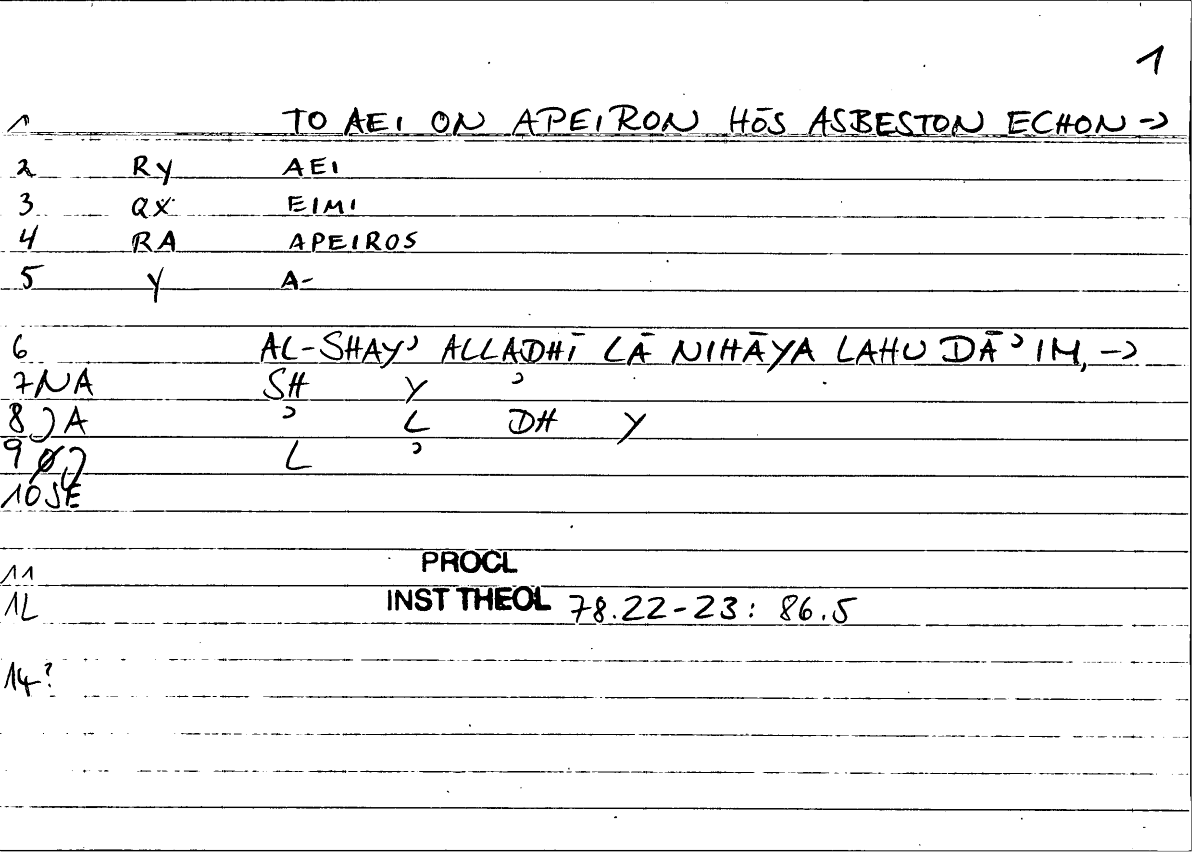 1
1 TO AEI ON APEIRON HŌS ASBESTON ECHON →
2 Ry AEI
3 QX EIMI
4 RA APEIROS
5 Y A-
6 AL-SHAYʾ ALLADHĪ LĀ NIHĀYA LAHU DĀʾIM, →
7 NA SH Y ʾ
8 A ʾ L DH Y
9 L ʾ
10 SE
11 PROCL
12 INST THEOL 78.22-23: 86.5
14?